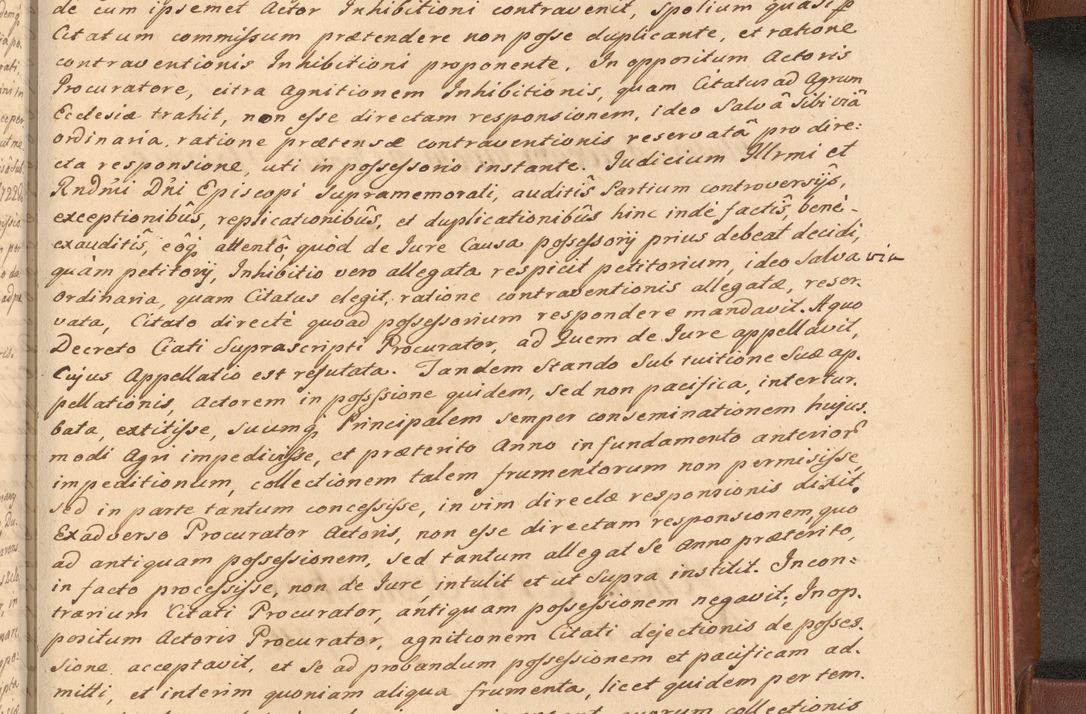 de cum ipsemet Actor Inhibitioni contravenit, spolium quasi p
Citatum commissum prætendere non posse duplicante, et ratione
contraventionis Inhibitioni proponente. In oppositum Actoris
Procuratore, citra agnitionem Inhibitionis, quam Citatus ad Agrum
Ecclesiæ trahit, non esse directam responsionem, ideo Salvâ Sibi viâ
ordinaria, ratione prætensæ contraventionis reservatâ pro dire:
cta responsione, uti in possessorio instante. Judicium Illrmi et
Rndmi Dni Episcopi Supramemorati, auditis Partium controversijs,
exceptionibus, replicationibus, et duplicationibus hinc indè factis, benè-
exauditis, eoq attento quòd de Jure Causa possessorij prius debeat decidi,
quàm petitorij, Inhibitio vero allegata respicit petitorium, ideo Salva via
ordinaria, quam Citatus elegit, ratione contraventionis allegatæ, reser-
vata, Citato directè quoad possessorium respondere mandavit. A quo
Decreto Citati Suprascripti Procurator, ad Quem de Jure appellavit,
Cujus Appellatio est refutata. Tandem Stando Sub tuitione Suæ ap-
pellationis, Actorem in possessione quidem, sed non pacifica, intertur-
bata, extitisse, suumq Principalem semper conseminationem hujus-
modi Agri impedivisse, et præterito Anno in fundamento anterior
impeditionum, collectionem talem frumentorum non permisisse,
sed in parte tantum concessisse, in vim directæ responsionis dixit.
Ex adverso Procurator Actoris, non esse directam responsionem, quo
ad antiquam possessionem, sed tantum allegat se Anno præterito,
in facto processisse, non de Jure, intulit et ut supra institit. In con:
trarium Citati Procurator, antiquam possessionem negavit; In op-
positum Actoris Procurator, agnitionem Citati dejectionis de posses-
sione acceptavit, et se ad probandum possessionem et pacificam ad-
mitti, et interim quoniam aliqua frumenta, licet quidem per tem-
quarum collectionis